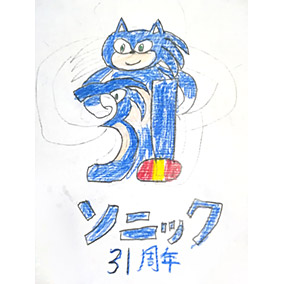 31
ソニック
31周年